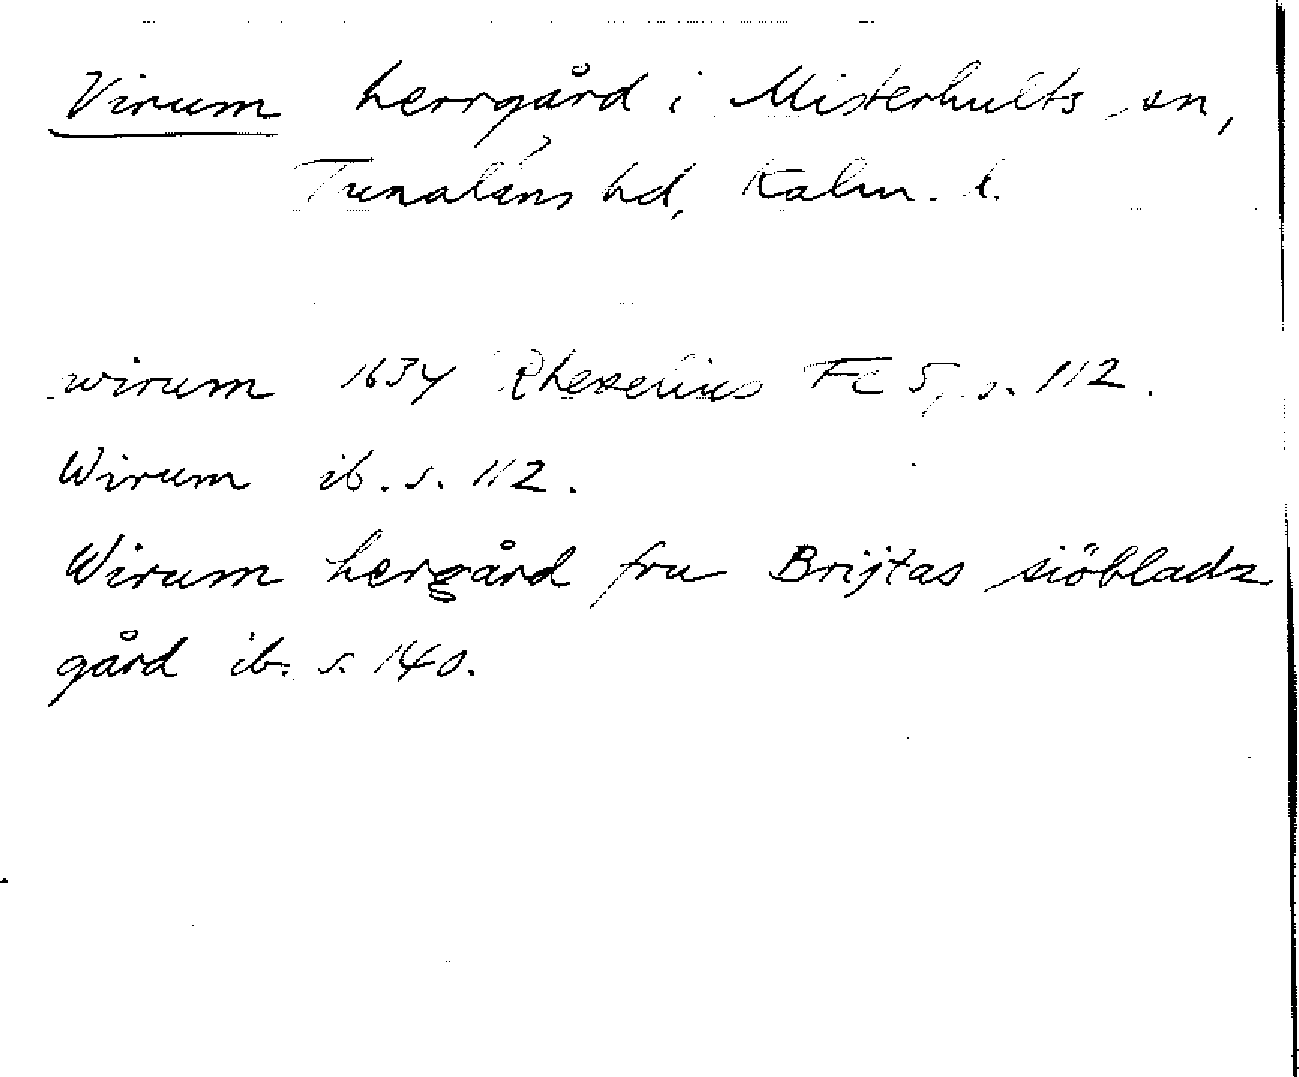 Virum herrgård i Misterhults sn,
Tunaläns hd, Kalm. l.
wirum 1634 Rhezelius Fc 5, s. 112.
Wirum ib. s. 112.
Wirum hergård fru Brijtas siöbladz
gård ib. s. 140.